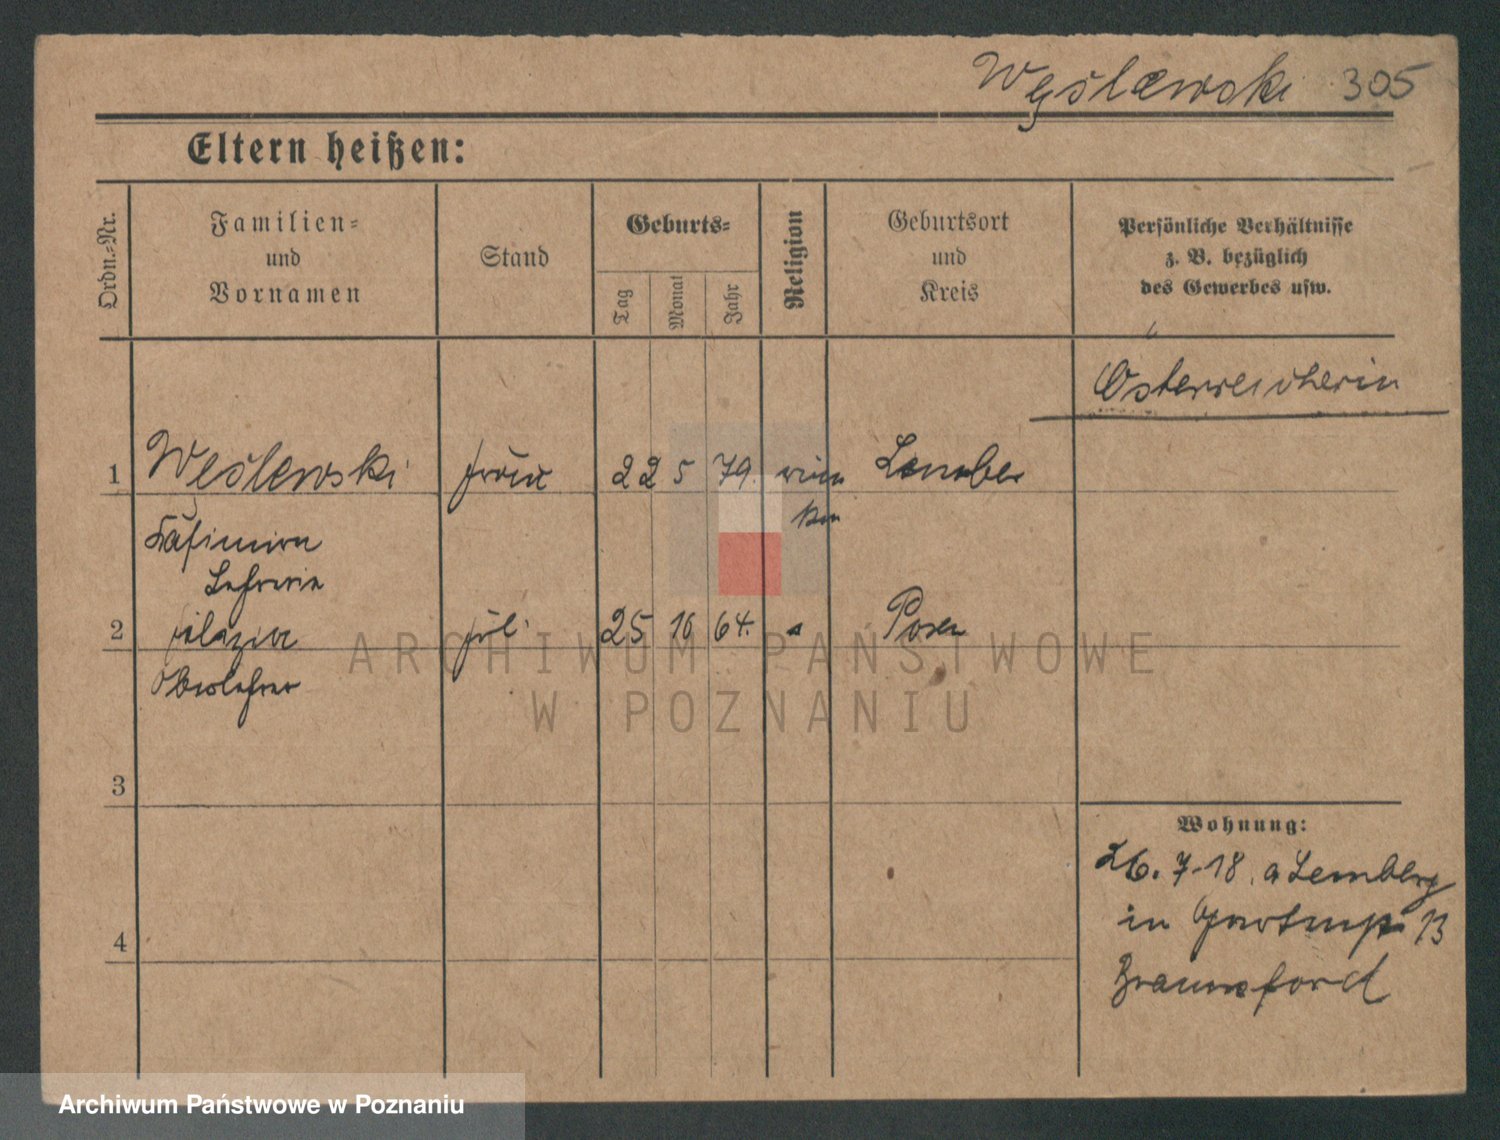 Węślewski 305
Eltern heißen:
Ordn.-Nr.
Familien-
und
Vornamen
Stand
Geburts-
Tag
Monat
Jahr
Religion
Geburtsort
und
Kreis
Persönliche Verhältnisse
z. B. bezüglich
des Gewerbes usw.
Österreicherin
1 Weślewski 22 5 79.
Kasimira
Lehrerin
2 25 10 64. Posen
Oberlehrer
3
4
Wohnung:
26. 7.18. a Lemberg
in 13
ARCHIWUM PAŃSTWOWE
W POZNANIU
Archiwum Państwowe w Poznaniu